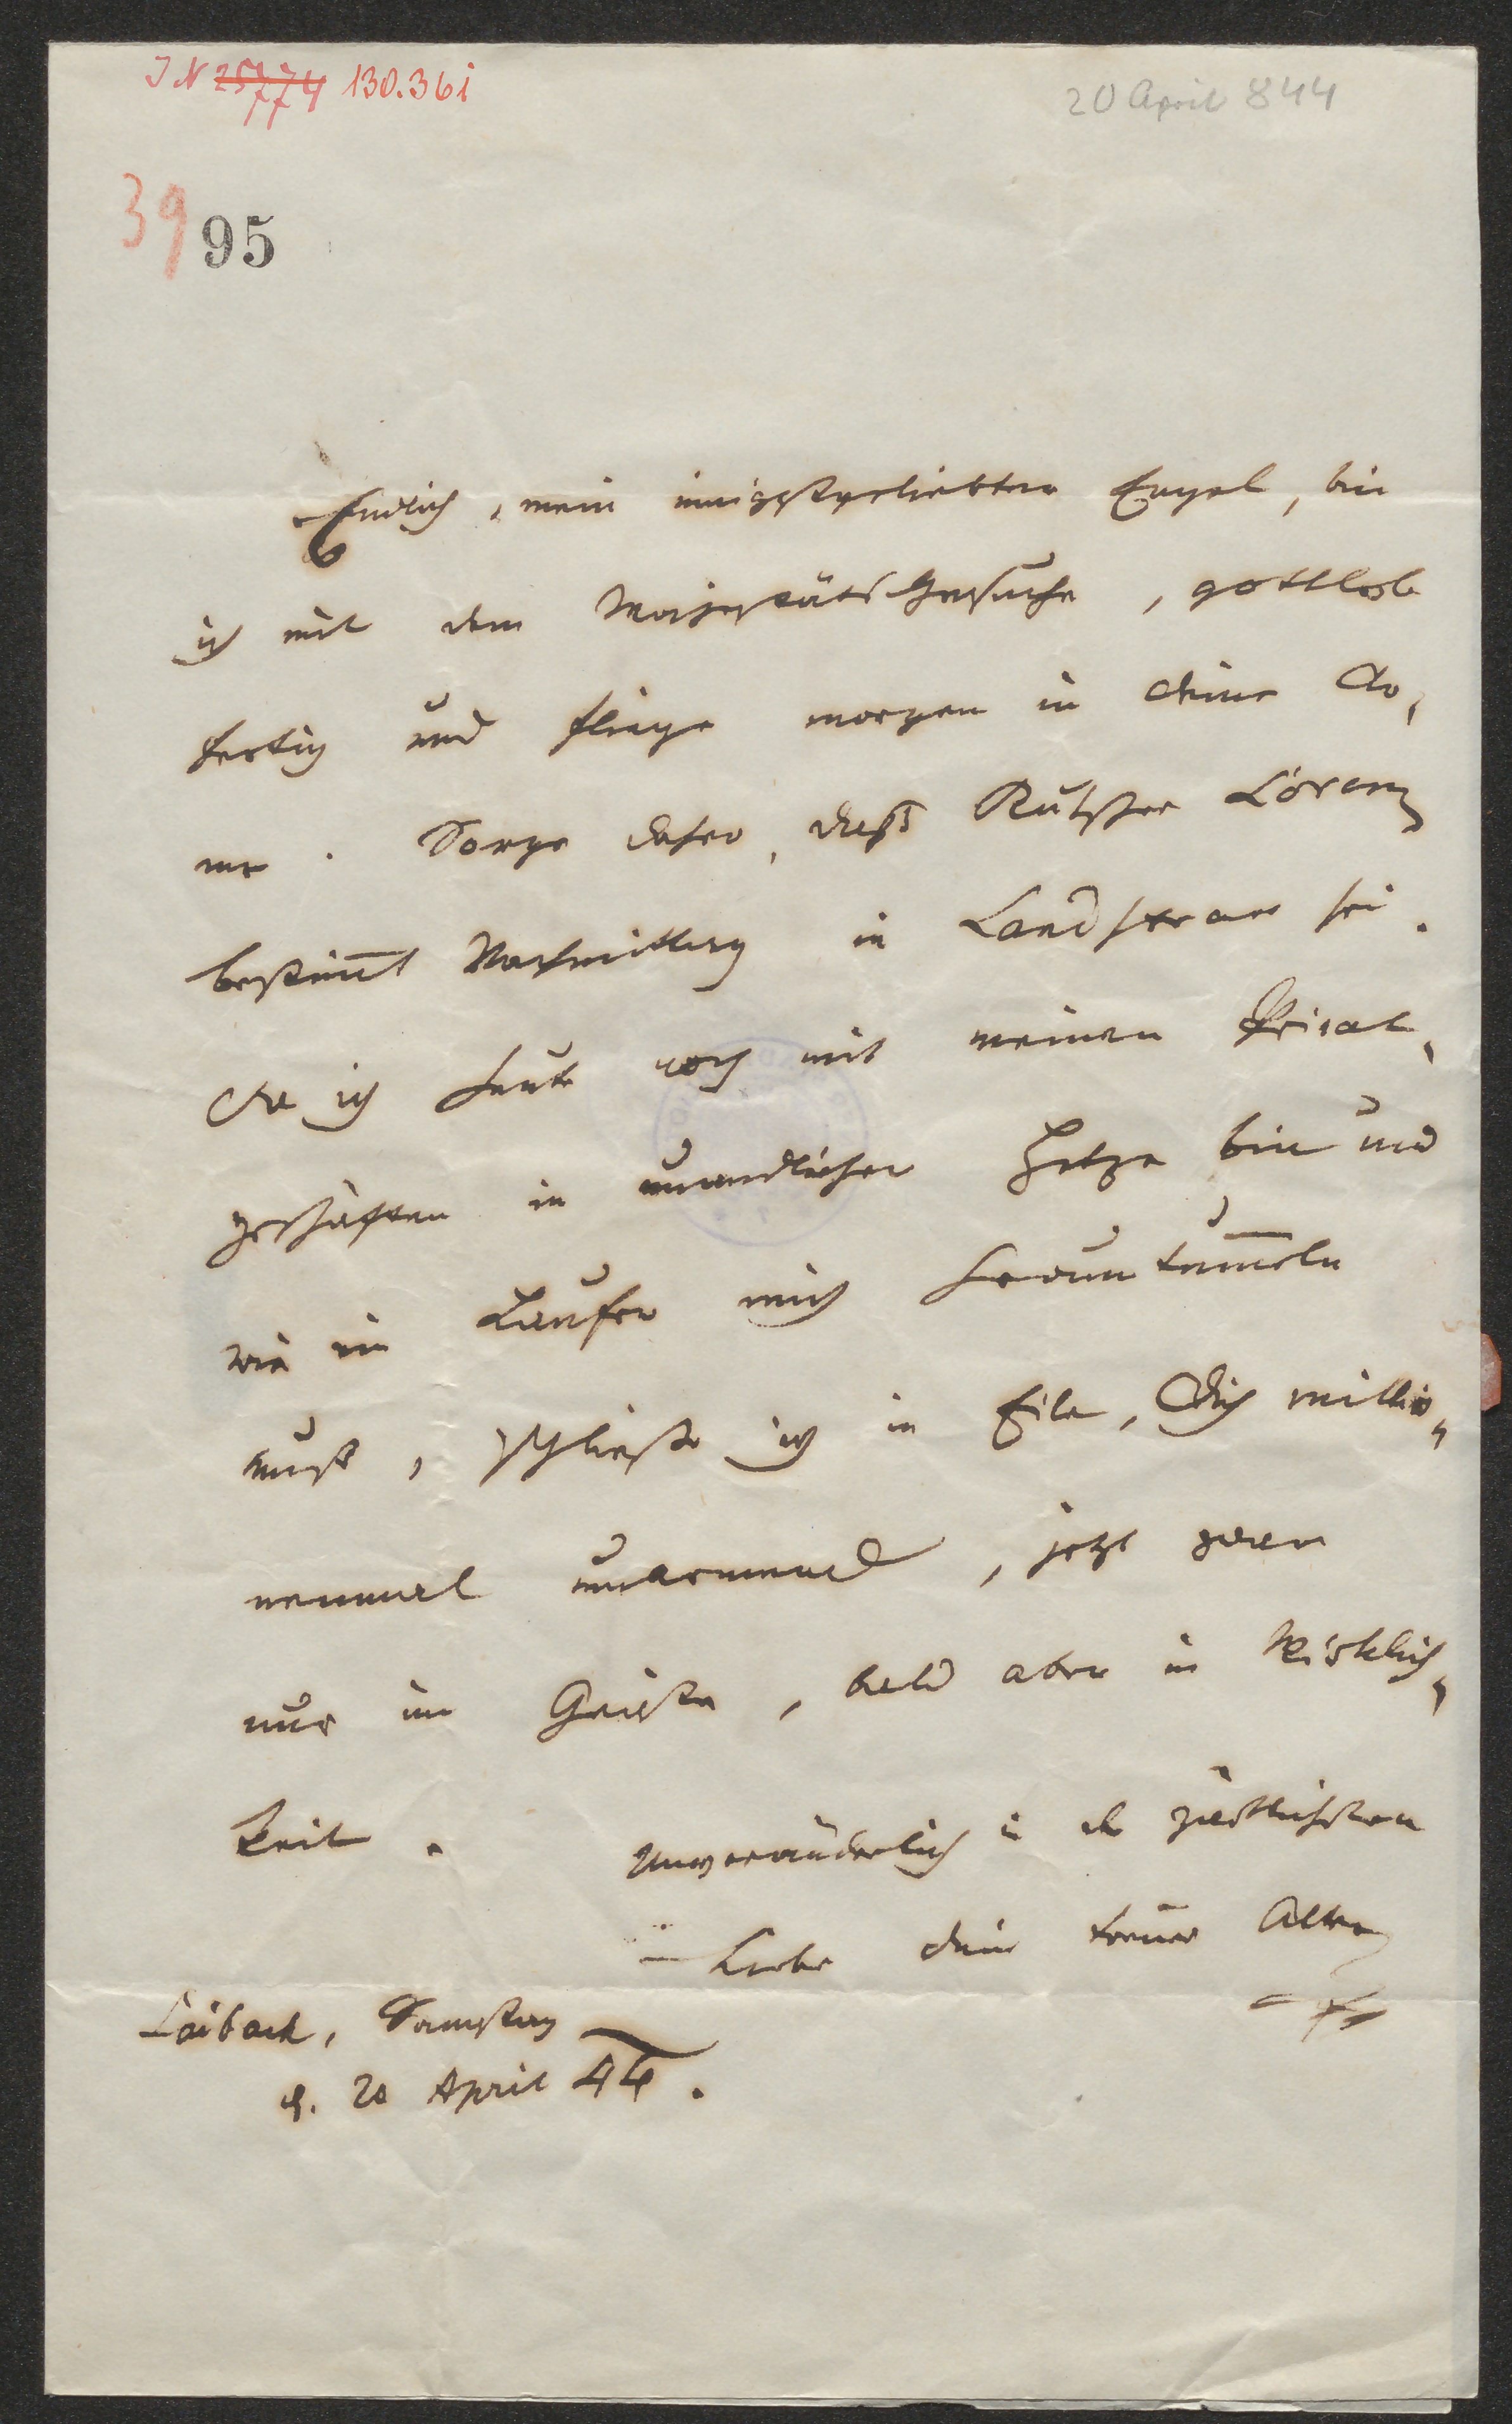 I N 25774 130.361
20 April 844
39 95
Endlich, mein innigstgeliebter Engel, bin
ich mit dem Majestäts Gesuche, gottlob
fertig und fliege morgen in deine Ar„
me. Sorge daher, daß Kutscher Lorenz
bestim̅t Nachmittag in Landstrass sei.
Da ich heute noch mit meinen Privat„
geschäften in unendlicher Hetze bin und
wie ein Laufer mich herumtum̅eln
muß, schließe ich in Eile, Dich millio„
nenmal umarmend, jetzt zwar
nur im Geiste, bald aber in Wirklich„
keit. Unveränderlich in der zärtlichsten
Liebe dein treuer Alter
Laibach, Samstag
d. 20 April 44.